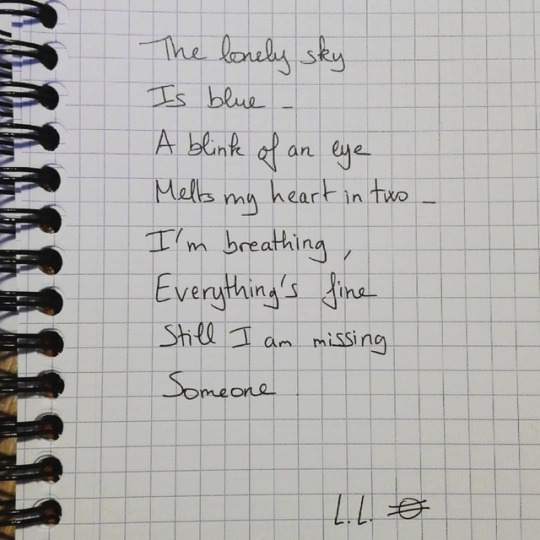 The lonely sky
Is blue _
A blink of an eye
Melts my heart in two _
I'm breathing,
Everything's fine
Still I am missing
Someone.
L.L.